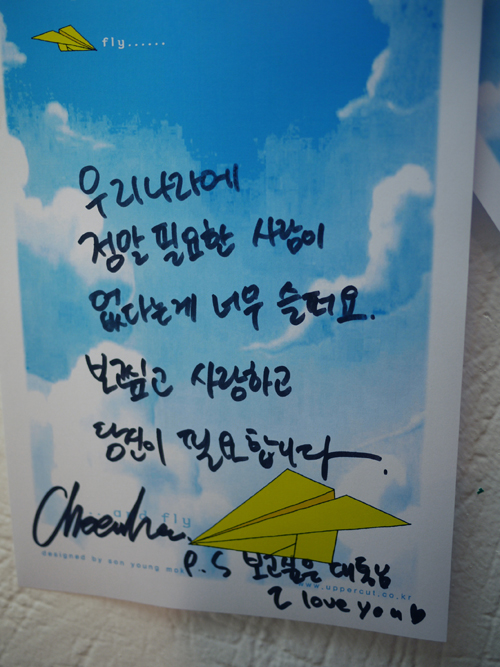 fly......
우리나라에
정말 필요한 사람이
없다는게 너무 슬퍼요.
보고싶고 사랑하고
당신이 필요합니다.
and fly
designed by son young mok
P.S 보고싶은 대통님
www.uppercut.co.kr
I love you♥